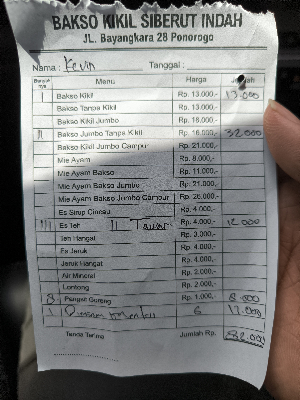 BAKSO KIKIL SIBERUT INDAH
JL. Bayangkara 28 Ponorogo
Nama : Kevin Tanggal :
Banyak nya Menu Harga Jumlah
1 Bakso Kikil Rp. 13.000,- 13.000
Bakso Tanpa Kikil Rp. 13.000,-
Bakso Kikil Jumbo Rp. 18.000,-
11 Bakso Jumbo Tanpa Kikil Rp. 16.000,- 32.000
Bakso Kikil Jumbo Campur Rp. 21.000,-
Mie Ayam Rp. 8.000,-
Mie Ayam Bakso Rp. 11.000,-
Mie Ayam Bakso Jumbo Rp. 21.000,-
Mie Ayam Bakso Jumbo Campur Rp. 26.000,-
Es Sirup Cincau Rp. 4.000,-
111 Es Teh 11 Tawar Rp. 4.000,- 12.000
Teh Hangat Rp. 3.000,-
Es Jeruk Rp. 4.000,-
Jeruk Hangat Rp. 4.000,-
Air Mineral Rp. 2.000,-
Lontong Rp. 2.000,-
8 Pangsit Goreng Rp. 1.000,- 8.000
1 6 17.000
Tanda Terima Jumlah Rp. 82.000